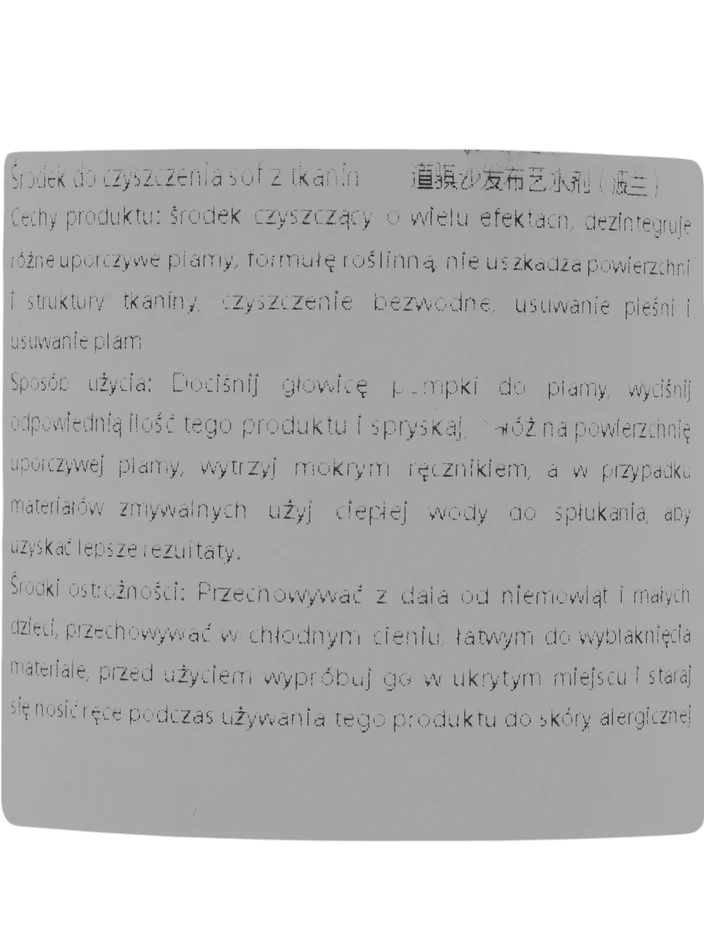 Środek do czyszczenia sof z tkanin 沙发布艺水剂（波兰）
Cechy produktu: środek czyszczący o wielu efektach, dezintegruje
różne uporczywe plamy, formułę roślinną, nie uszkadza powierzchni
i struktury tkaniny, czyszczenie bezwodne, usuwanie pleśni i
usuwanie plam
Sposób użycia: Dociśnij głowicę pompki do plamy, wyciśnij
odpowiednią ilość tego produktu i spryskaj, na powierzchnię
uporczywej plamy, wytrzyj mokrym ręcznikiem, a w przypadku
materiałów zmywalnych użyj ciepłej wody do spłukania, aby
uzyskać lepsze rezultaty.
Środki ostrożności: Przechowywać z dala od niemowląt i małych
dzieci, przechowywać w chłodnym cieniu, łatwym do wyblaknięcia
materiale, przed użyciem wypróbuj go w ukrytym miejscu i staraj
się nosić ręce podczas używania tego produktu do skóry alergicznej